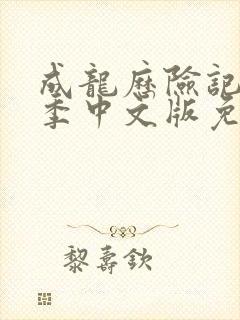 成龍歷險記
季中文版免
黎壽欽